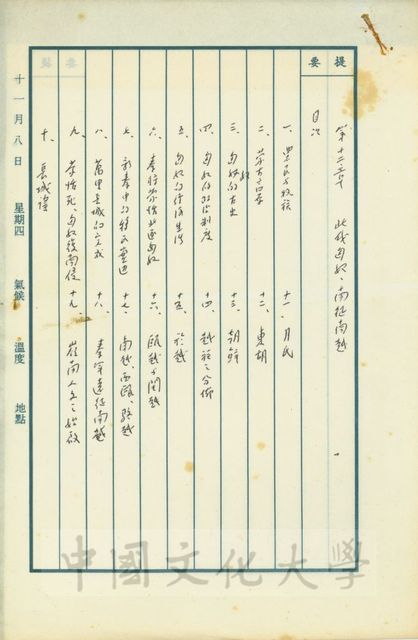 提要
第十二章 北伐匈奴、南征南越
目次
一、
十一、月氏
二、
十二、東胡
三、匈奴的古史
十三、朝鮮
四、匈奴的政治制度
十四、越族之分佈
五、匈奴的經濟生活
十五、於越
六、秦將蒙恬北逐匈奴
十六、甌越與閩越
七、新秦中的移民實邊
十七、南越、西甌、駱越
八、萬里長城的完成
十八、秦軍遠征南越
九、蒙恬死、匈奴復南侵
十九、嶺南人文之始啟
十、長城
十一月八日 星期四 氣候 溫度 地點
中國文化大學